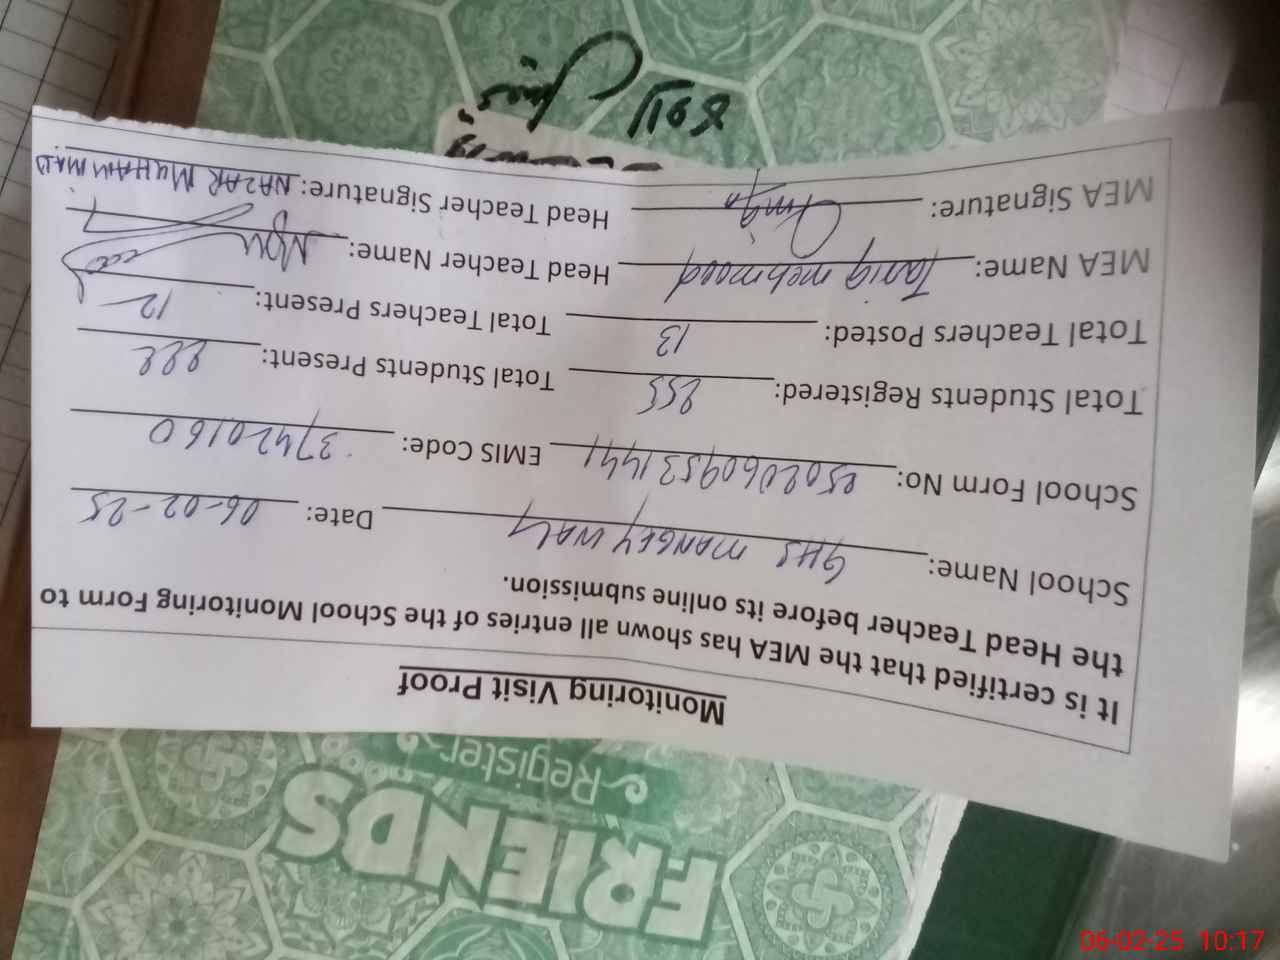 Monitoring Visit Proof
It is certified that the MEA has shown all entries of the School Monitoring Form to
the Head Teacher before its online submission.
School Name: GHS MANGEY WALY Date: 06-02-25
School Form No: 2502060953 1441 EMIS Code: 37420160
Total Students Registered: 255 Total Students Present: 222
Total Teachers Posted: 13 Total Teachers Present: 12
MEA Name: Tariq mehmood Head Teacher Name:
MEA Signature: Head Teacher Signature: NAZAR MUHAMMAD
FRIENDS
Register
06-02-25 10:17